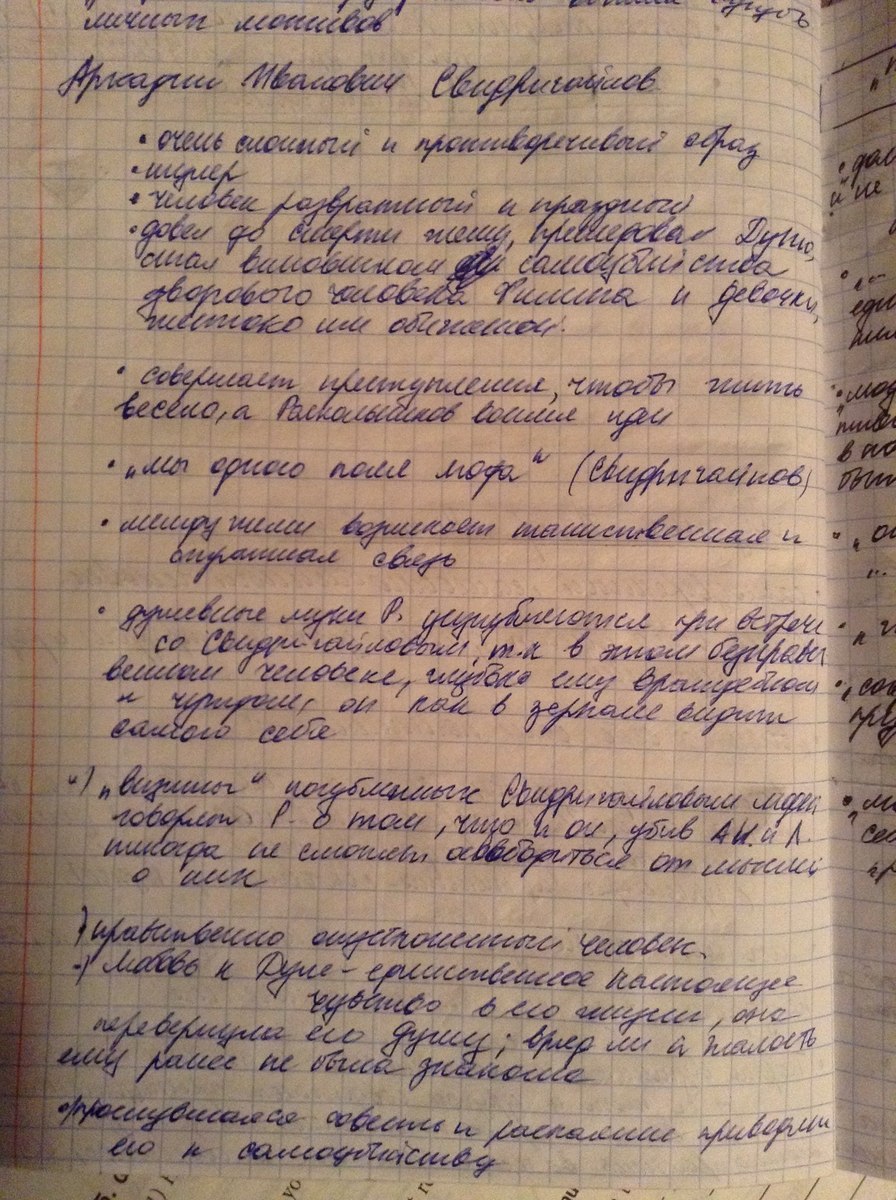 личных мотивов
Аркадий Иванович Свидригайлов
• очень сложный и противоречивый образ
• шулер
• человек развратный и праздный
• довел до смерти жену, преследовал Дуню,
стал виновником самоубийства
дворового человека Филиппа и девочки,
жестоко им обиженной.
• совершает преступления, чтобы жить
весело, а Раскольников во имя идеи
• „мы одного поля ягода“ (Свидригайлов)
• между ними возникает таинственная и
странная связь
• душевные муки Р. усугубляются при встрече
со Свидригайловым, т.к в этом безнравс
венном человеке, глубоко ему враждебном
и чуждом, он как в зеркале видит
самого себя
•) „визиты“ погубленных Свидригайловым людей
говорят Р. о том, что и он, убив А.И. и Л.
никогда не сможет освободиться от мысли
о них
•) нравственно опустошенный человек.
•) Любовь к Дуне - единственное настоящее
чувство в его жизни, она
перевернула его душу; вряд ли и жалость
ему ранее не была знакома
• проснувшаяся совесть и раскаяние приводят
его к самоубийству